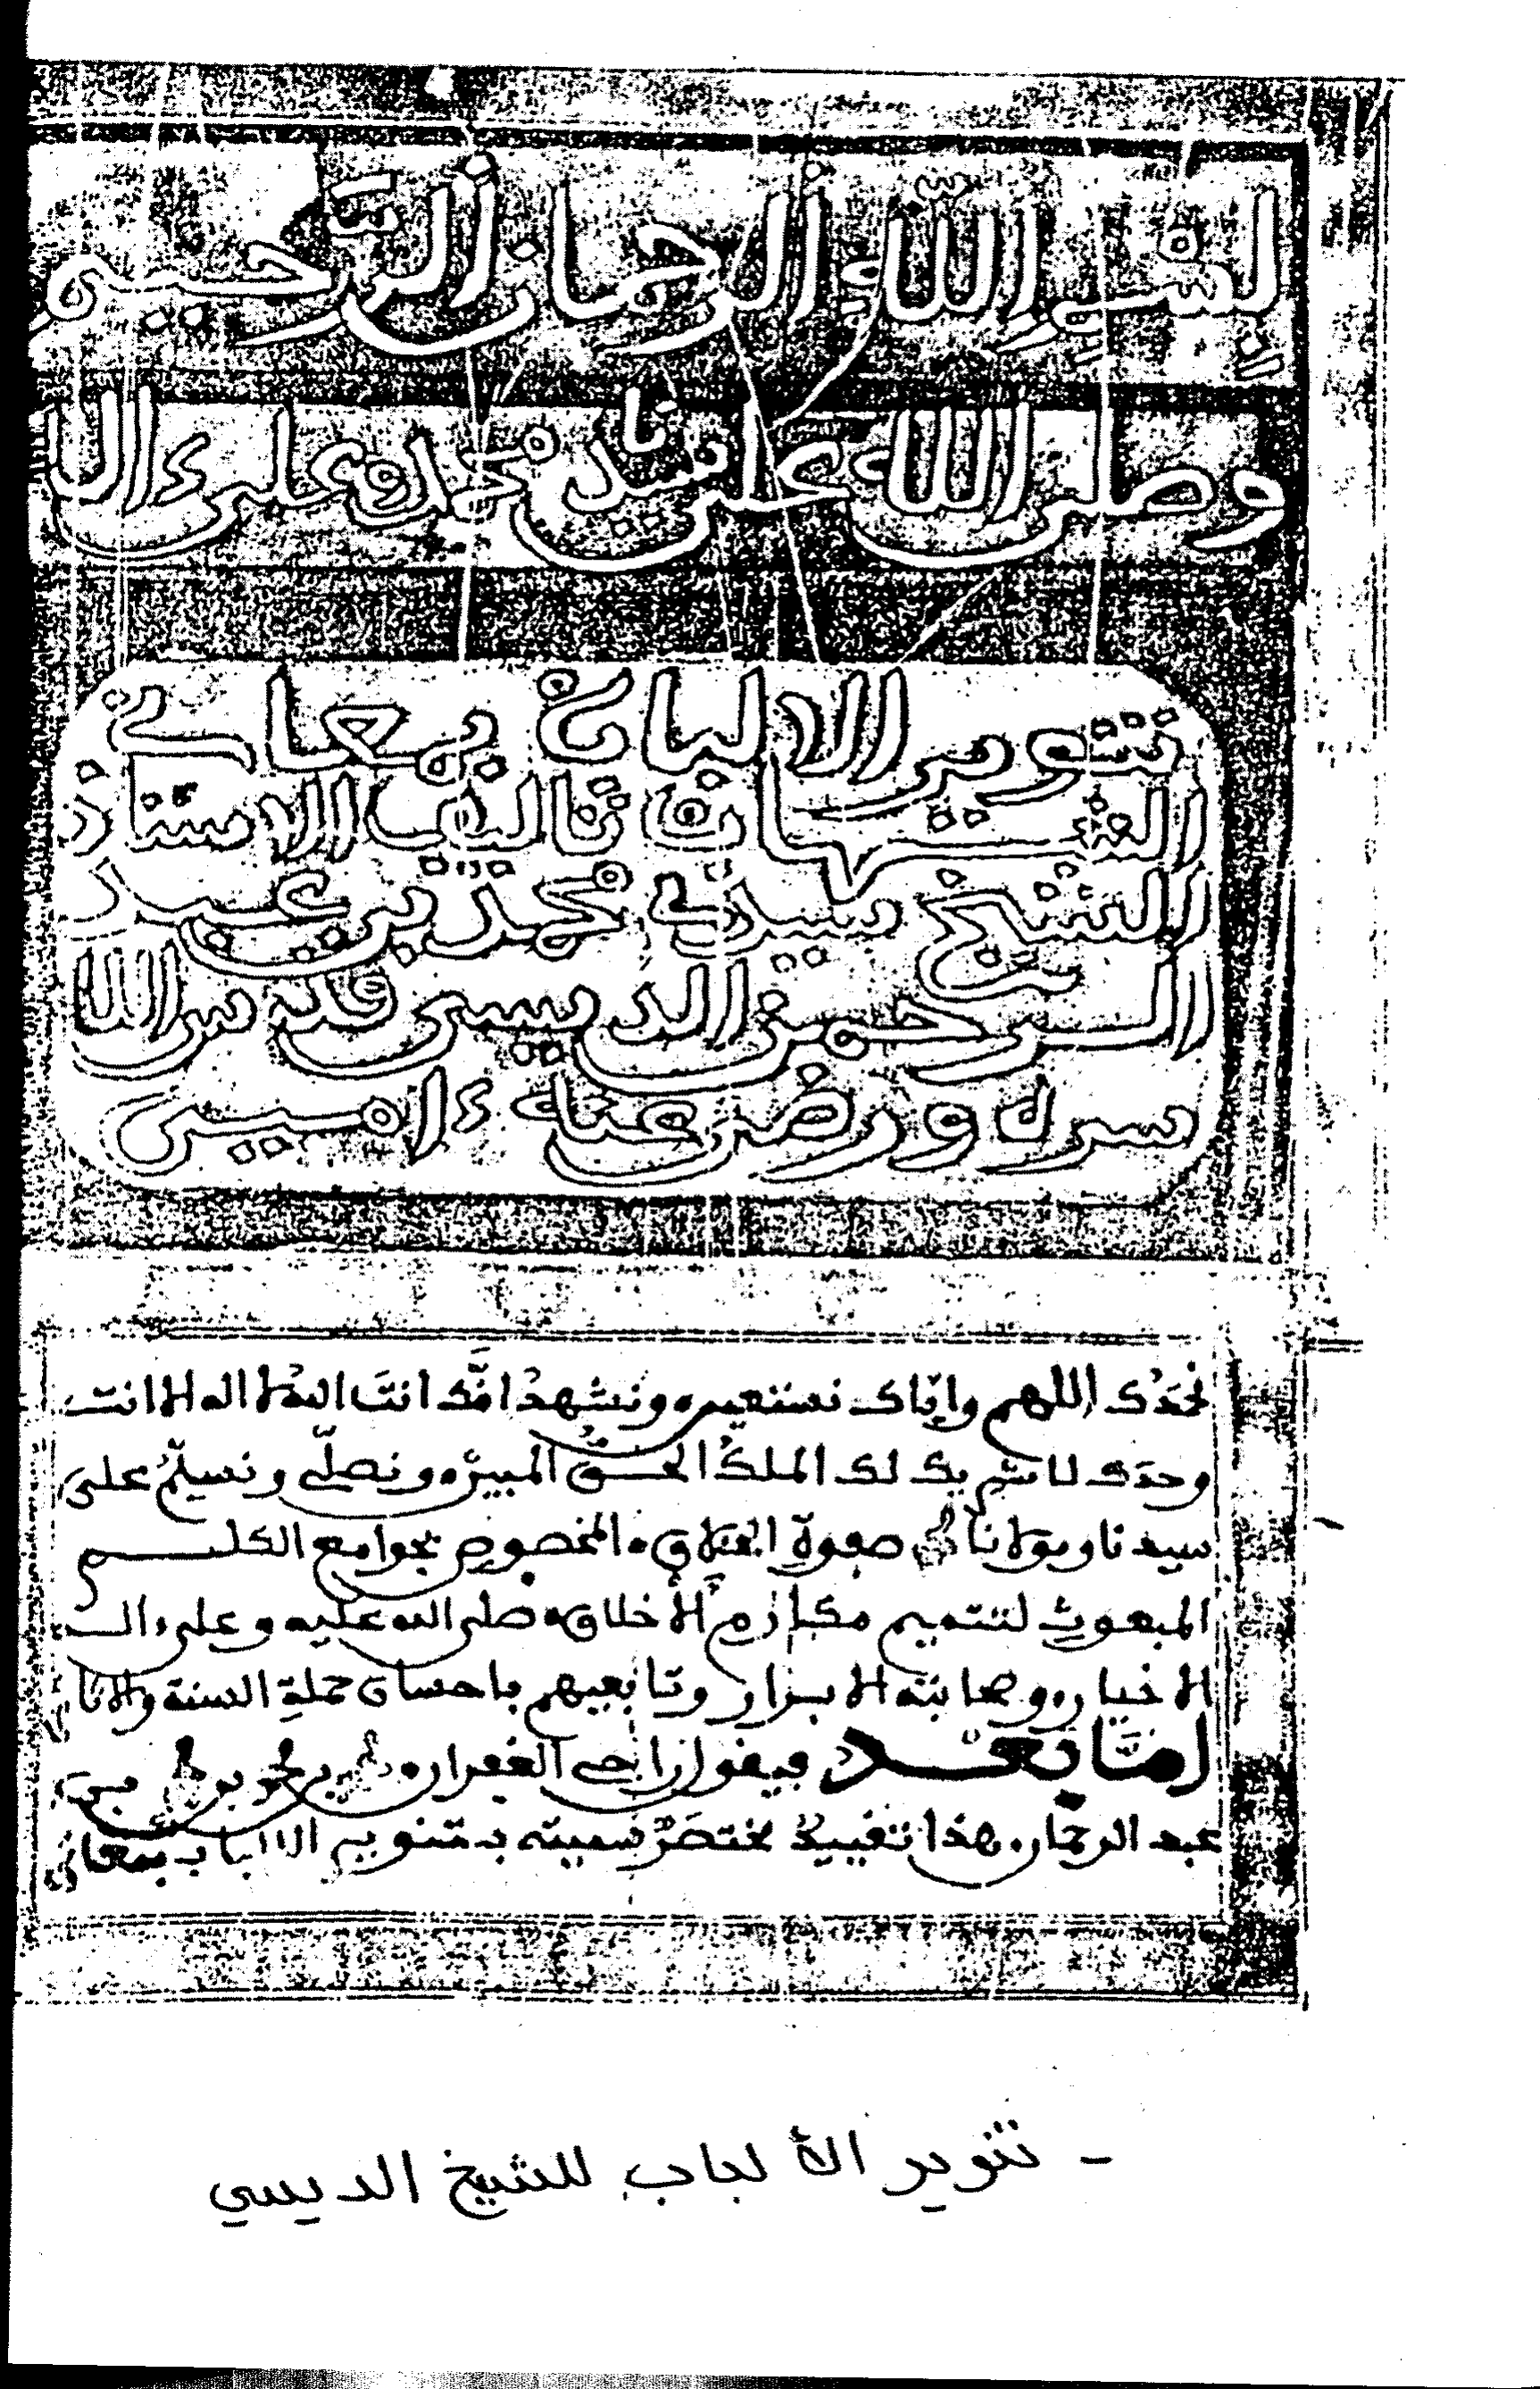 بسم الله الرحمان الرحيم
وصلى الله على سيدنا محمد وعلى ءاله
تنوير الالباب بمعاني
الشهاب تاليف الاستاذ
الشيخ سيدي محمد بن عبد
الرحمن الديسي قدس الله
سره ورضي عنه ءامين
نحمدك اللهم وإياك نستعين ونشهد انك انت الله لا اله الا انت
وحدك لا شريك لك الملك الحق المبين ونصلي ونسلم على
سيدنا ومولانا محمد صفوة الخلاق المخصوص بجوامع الكلم
المبعوث لتتميم مكارم الأخلاق صلى الله عليه وعلى ءاله
الاخيار وصحابته الابرار وتابعيهم باحسان حملة السنة والاثار
أما بعد فيقول راجي الغفران محمد بن
عبد الرحمان هذا تقييد مختصر سميته بتنوير الالباب بمعاني
- تنوير الألباب للشيخ الديسي